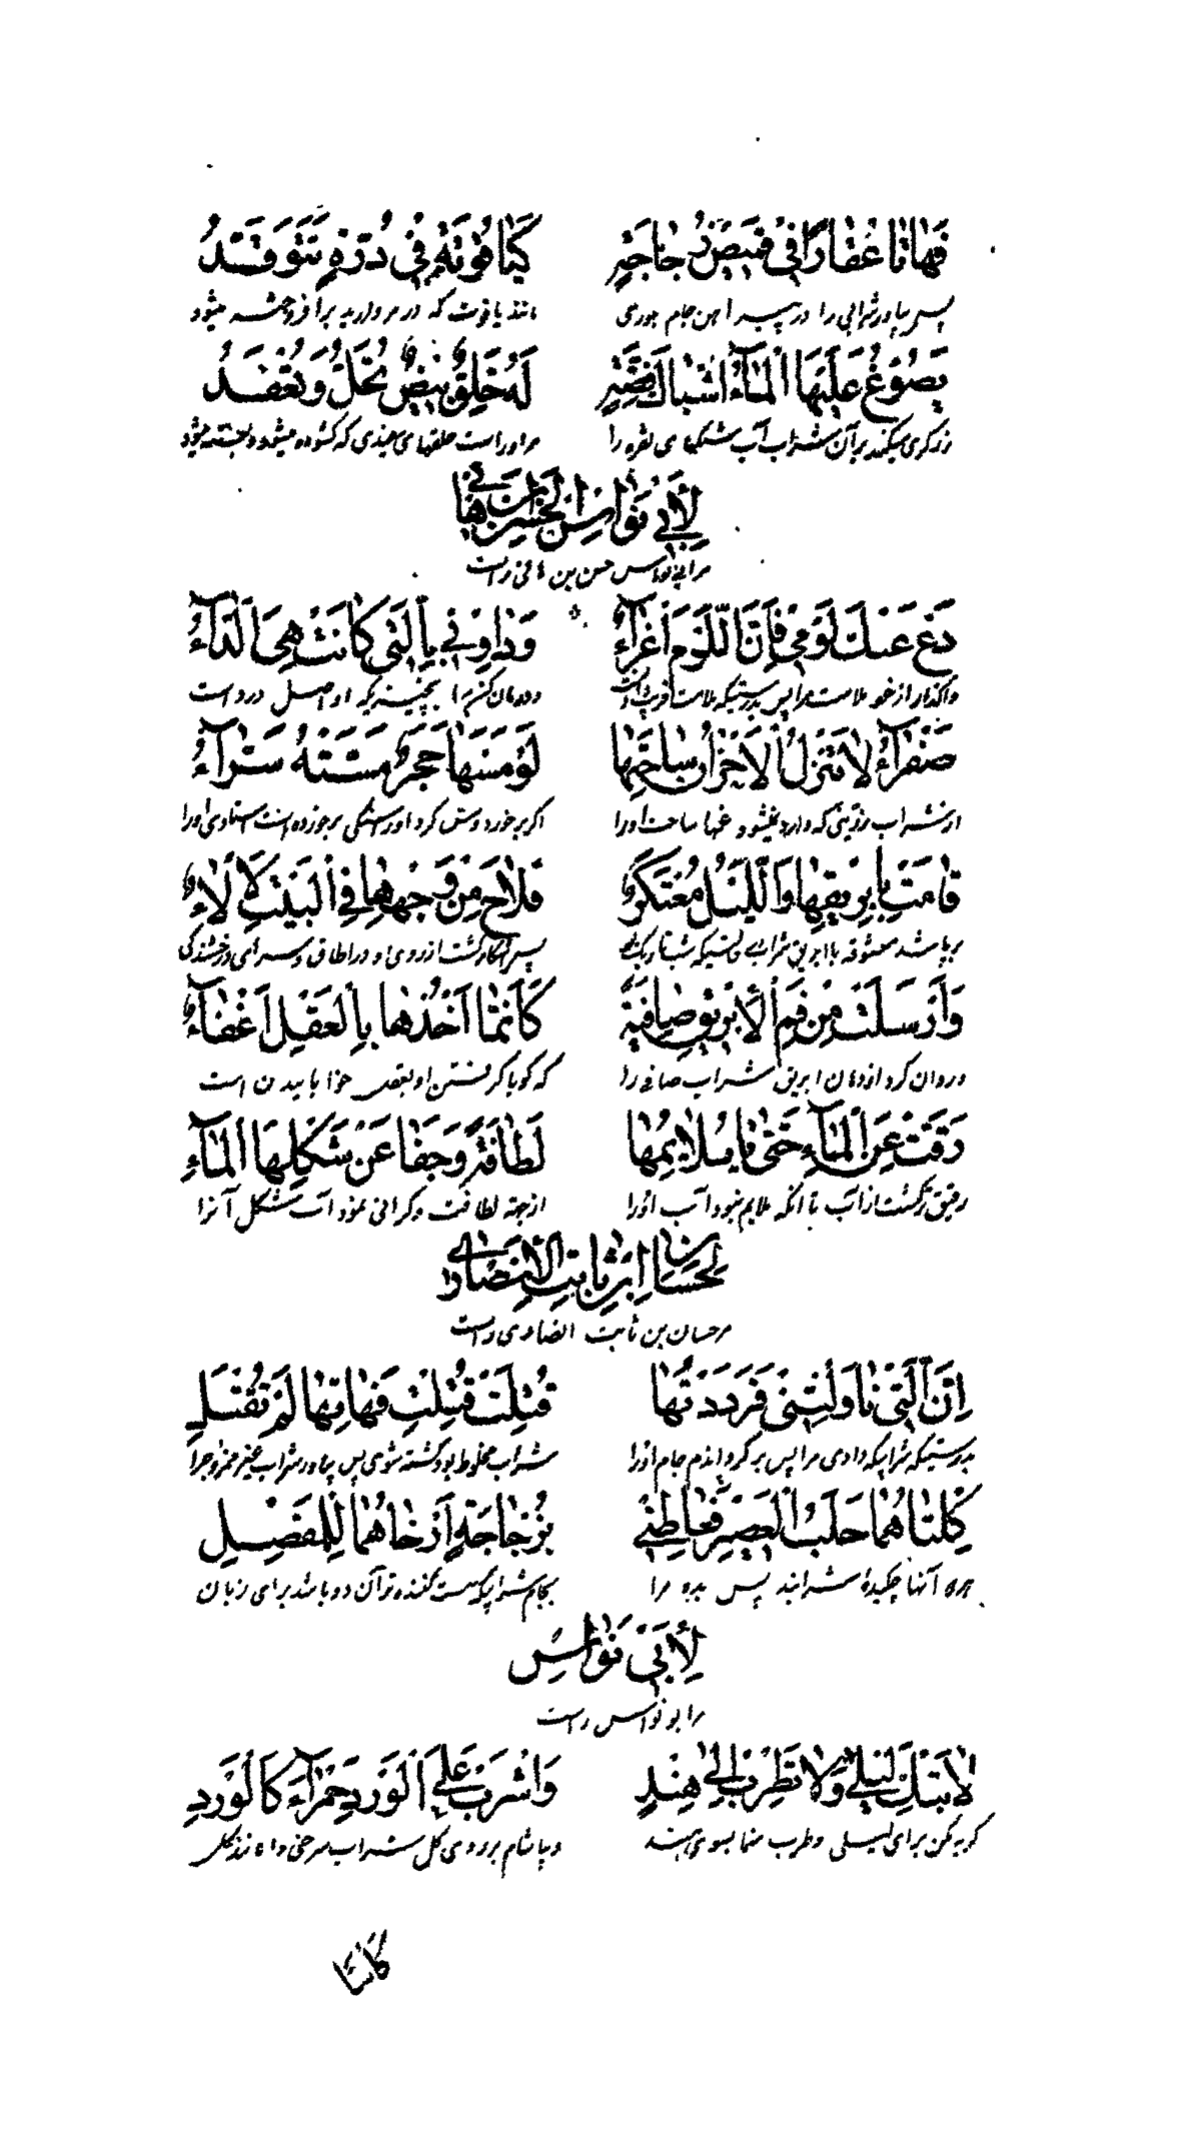 فَهَاتَا عُقَارًا فِی قَمِیصِ زُجَاجَةٍ كَيَاقُوتَةٍ فِي دُرَّةٍ تَتَوَقَّدُ
پس بیاور شرابی را در پیراهن جام بلوری مانند یاقوت که در مروارید برافروخته میشود
يَصُوغُ عَلَيْهَا الْمَاءُ اشْبَاكَ فِضَّةٍ لَهُ حَلَقٌ بِيضٌ تُحَلُّ وَتُعْقَدُ
زرکری میکند بر آن شراب آب شبکهای نقره را مر او راست حلقهای سفیدی که کشوده میشود و بسته میشود
لِأَبِي نَوَاسِ الْحَسَنِ بْنِ هَانِي
مر ابی نواس حسن بن هانی راست
دَعْ عَنْكَ لَوْمِي فَاِنَّ اللَّوْمَ اَغْرَاءُ وَدَاوِنِي بِالَّتِي كَانَتْ هِيَ الدَّاءُ
واکذار از خود ملامت مرا پس بدرستیکه ملامت ودرمان کن مرا بچیزیکه او اصل درد است
صَفْرَاءُ لَا تَنْزِلُ الْاَحْزَانُ سَاحَتَهَا لَوْ مَسَّهَا حَجَرٌ مَسَّتْهُ سَرَّاءُ
از شراب زردی که وارد نمیشود غمها ساحت اورا اکر برخورد ومس کرد اورا سنکی
قَامَتْ بِاِبْرِيقِهَا وَاللَّيْلُ مُعْتَكِرٌ فَلَاحَ مِنْ وَجْهِهَا فِي الْبَيْتِ لَأْلَاءُ
برپا شد معشوقه با ابریق شراب پس آشکار کشت از روی او در اطاق وسرای درخشندکی
وَاَرْسَلَتْ مِنْ فَمِ الْاِبْرِيقِ صَافِيَةً كَاَنَّمَا اَخْذُهَا بِالْعَقْلِ اِغْفَاءُ
وروان کرد از دهان ابریق شراب صافی را که کویا کرفتن او بعقل خوابانیدن است
رَقَّتْ عَنِ الْمَاءِ حَتّٰى مَا يُلَايِمُهَا لَطَافَةً وَجَفَا عَنْ شَكْلِهَا الْمَاءُ
رقیق ترکشت از آب تا آنکه ملایم نبود آب اورا از جهة لطافت وکرانی نمود آب شکل آنرا
لِحَسَّانِ ابْنِ ثَابِتِ الْاَنْصَارِي
مر حسان بن ثابت انصاری راست
اِنَّ الَّتِي نَاوَلْتَنِي فَرَدَدْتُهَا قُتِلَتْ قُتِلْتَ فَهَاتِهَا لَمْ تُقْتَلِ
بدرستیکه شرابیکه دادی مرا پس برکرداندم جام اورا شراب مخلوط بود کشته شوی پس بیاور شراب غیر ممزوج را
كِلْتَاهُمَا حَلَبُ الْعَصِيرِ فَعَاطِنِي بِزُجَاجَةٍ اَرْخَاهُمَا لِلْمَفْصِلِ
هر دو آنها چکیدهٔ شرابند پس بده مرا بجام شرابیکه سست کننده تر آن دو باشد برای زبان
لِأَبِي نَوَاسِ
مر ابو نواس راست
لَا تَبْكِ لَيْلٰى وَلَا تَطْرَبْ اِلٰى هِنْدٍ وَاشْرَبْ عَلَى الْوَرْدِ حَمْرَاءَ كَالْوَرْدِ
کریه مکن برای لیلی وطرب منما بسوی هند وبیاشام بر روی کل شراب سرخی
كَأْسًا